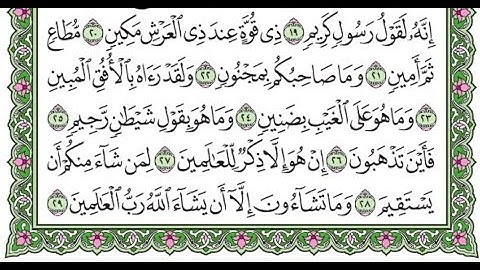 إِنَّهُۥ لَقَوْلُ رَسُولٍ كَرِيمٍ ۝١٩ ذِى قُوَّةٍ عِندَ ذِى ٱلْعَرْشِ مَكِينٍ ۝٢٠ مُّطَاعٍ
ثَمَّ أَمِينٍ ۝٢١ وَمَا صَاحِبُكُم بِمَجْنُونٍ ۝٢٢ وَلَقَدْ رَءَاهُ بِٱلْأُفُقِ ٱلْمُبِينِ
۝٢٣ وَمَا هُوَ عَلَى ٱلْغَيْبِ بِضَنِينٍ ۝٢٤ وَمَا هُوَ بِقَوْلِ شَيْطَٰنٍ رَّجِيمٍ ۝٢٥
فَأَيْنَ تَذْهَبُونَ ۝٢٦ إِنْ هُوَ إِلَّا ذِكْرٌ لِّلْعَٰلَمِينَ ۝٢٧ لِمَن شَآءَ مِنكُمْ أَن
يَسْتَقِيمَ ۝٢٨ وَمَا تَشَآءُونَ إِلَّآ أَن يَشَآءَ ٱللَّهُ رَبُّ ٱلْعَٰلَمِينَ ۝٢٩